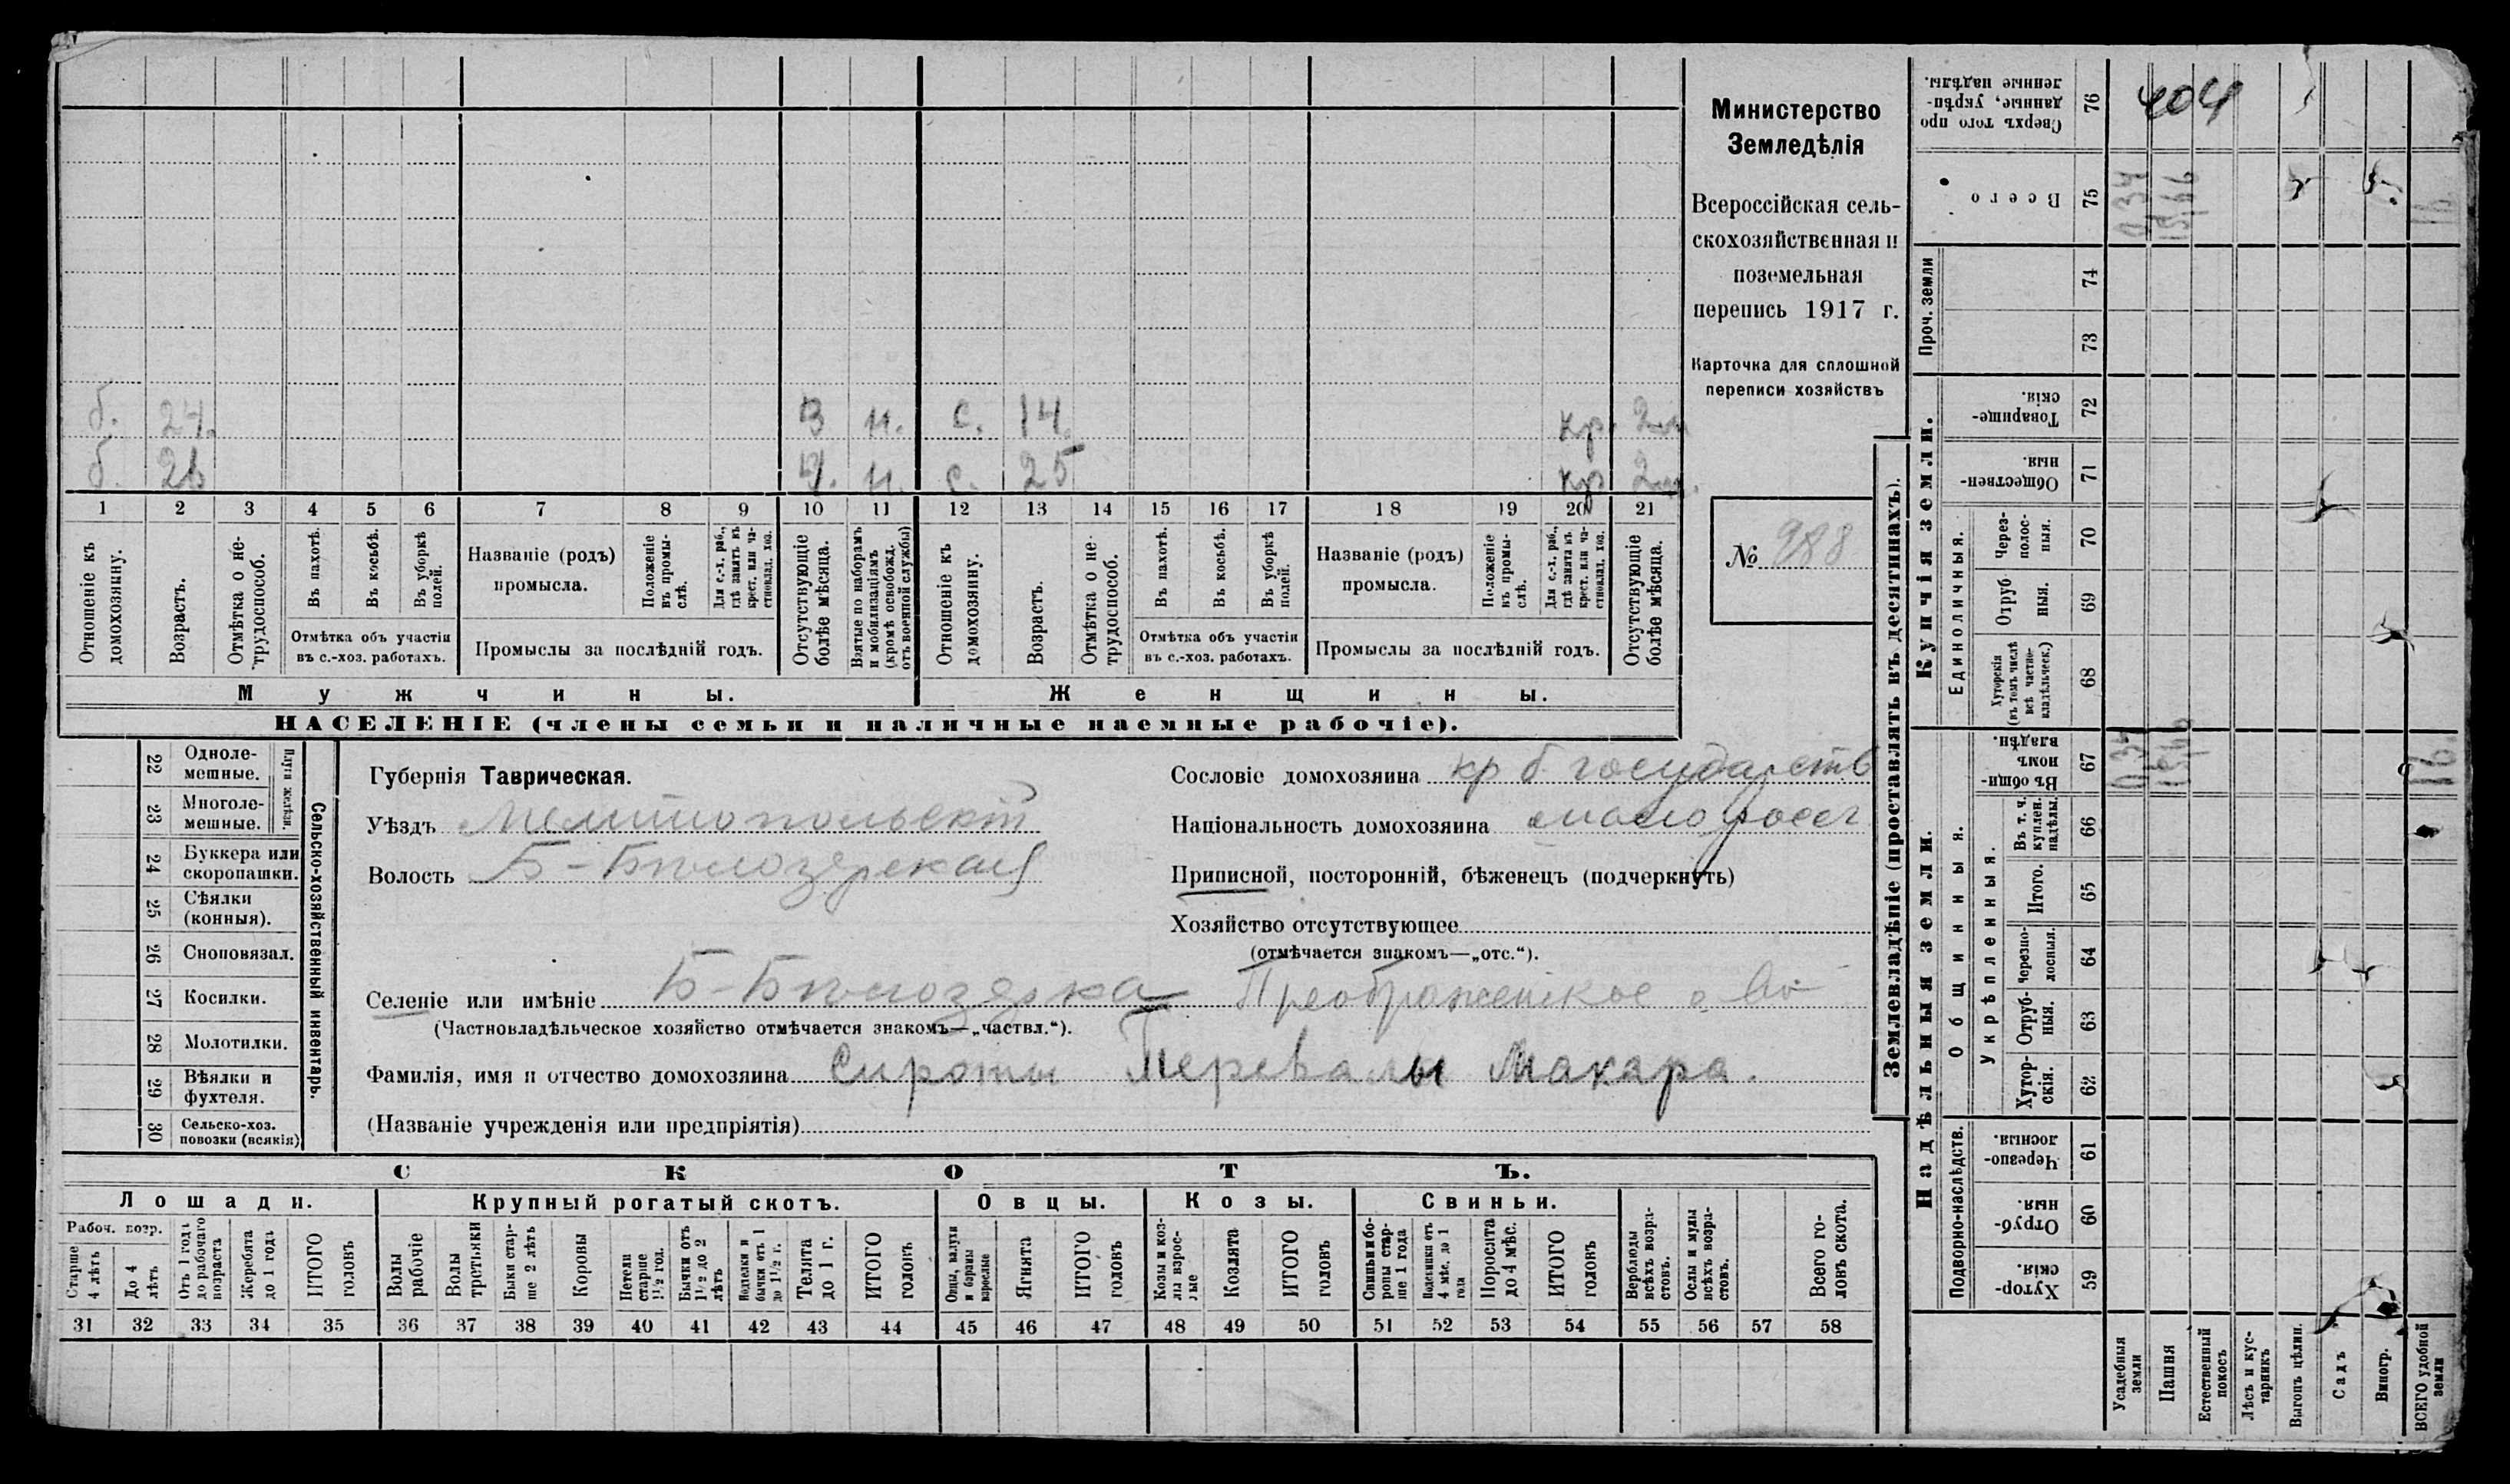 б. 24. В н. с. 14. кр. 2м
б. 26 У. н. с. 25 кр 2м.
1 2 3 4 5 6 7 8 9 10 11 12 13 14 15 16 17 18 19 20 21
Отношеніе къ домохозяину.
Возрастъ.
Отмѣтка о не-трудоспособ.
Въ пахотѣ.
Въ косьбѣ.
Въ уборкѣ полей.
Отмѣтка объ участіи
въ с.-хоз. работахъ.
Названіе (родъ)
промысла.
Положеніе въ промы-слѣ.
Для с.-х. раб., гдѣ занятъ въ крест. или ча-стновлад. хоз.
Промыслы за послѣдній годъ.
Отсутствующіе болѣе мѣсяца.
Взятые по наборамъ и мобилизаціямъ (кромѣ освобожд. отъ военной службы)
Отношеніе къ домохозяину.
Возрастъ.
Отмѣтка о не трудоспособ.
Въ пахотѣ.
Въ косьбѣ.
Въ уборкѣ полей.
Отмѣтка объ участіи
въ с.-хоз. работахъ.
Названіе (родъ)
промысла.
Положеніе въ промы-слѣ.
Для с.-х. раб., гдѣ занята въ крест. или ча-стновлад. хоз.
Промыслы за послѣдній годъ.
Отсутствующіе болѣе мѣсяца.
Мужчины.
Женщины.
НАСЕЛЕНІЕ (члены семьи и наличные наемные рабочіе).
Министерство
Земледѣлія
Всероссійская сель-
скохозяйственная и
поземельная
перепись 1917 г.
Карточка для сплошной
переписи хозяйствъ
№ 988
22 Одноле-мешные.
23 Многоле-мешные.
Плуги желѣзн.
24 Буккера или скоропашки.
25 Сѣялки (конныя).
26 Сноповязал.
27 Косилки.
28 Молотилки.
29 Вѣялки и фухтеля.
30 Сельско-хоз. повозки (всякія)
Сельско-хозяйственный инвентарь.
Губернія Таврическая.
Уѣздъ Мелитопольскій
Волость Б-Бѣлозерская
Сословіе домохозяина кр б государств
Національность домохозяина малоросс
Приписной, посторонній, бѣженецъ (подчеркнуть)
Хозяйство отсутствующее
(отмѣчается знакомъ—„отс.“).
Селеніе или имѣніе Б-Бѣлозерка Преображенское о-во
(Частновладѣльческое хозяйство отмѣчается знакомъ—„частвл.“).
Фамилія, имя и отчество домохозяина Сироты Перевалы Макара.
(Названіе учрежденія или предпріятія)
СКОТЪ.
Лошади. Крупный рогатый скотъ. Овцы. Козы. Свиньи.
Рабоч. возр.
Старше 4 лѣтъ
До 4 лѣтъ
Отъ 1 года до рабочаго возраста
Жеребята до 1 года
ИТОГО головъ
Волы рабочіе
Волы третьяки
Быки стар-ше 2 лѣтъ
Коровы
Нетели старше 1½ год.
Бычки отъ 1½ до 2 лѣтъ
Нетелки и бычки отъ 1 до 1½ г.
Телята до 1 г.
ИТОГО головъ
Овцы, валухи и бараны взрослые
Ягнята
ИТОГО головъ
Козы и коз-лы взрос-лые
Козлята
ИТОГО головъ
Свиньи и бо-ровы стар-ше 1 года
Подсвинки отъ 4 мѣс. до 1 года
Поросята до 4 мѣс.
ИТОГО головъ
Верблюды всѣхъ возра-стовъ.
Ослы и мулы всѣхъ возра-стовъ.
Всего го-ловъ скота.
31 32 33 34 35 36 37 38 39 40 41 42 43 44 45 46 47 48 49 50 51 52 53 54 55 56 57 58
Землевладѣніе (проставлять въ десятинахъ).
404
Сверхъ того про данные, укрѣп-ленные надѣлы. 76
Всего 75 0,34 15,66 16
Проч. земли
74
73
Купчія земли.
Товарище-скія. 72
Обществен-ныя. 71
Единоличныя.
Через-полос-ныя. 70
Отруб ныя. 69
Хуторскія (въ томъ числѣ всѣ частно-владѣльческ.) 68
Надѣльныя земли.
Общинныя.
Въ общин номъ владѣн. 67 0,34 15,66 16.
Укрѣпленныя.
Въ т. ч. куплен. надѣлы. 66
Итого. 65
Черезпо-лосныя. 64
Отруб-ныя. 63
Хутор-скія. 62
Подворно-наслѣдств.
Черезпо-лосныя. 61
Отруб-ныя. 60
Хутор-скія. 59
Усадебныя земли
Пашня
Естественный покосъ
Лѣсъ и кус-тарникъ
Выгонъ цѣлин.
Садъ
Виногр.
ВСЕГО удобной земли